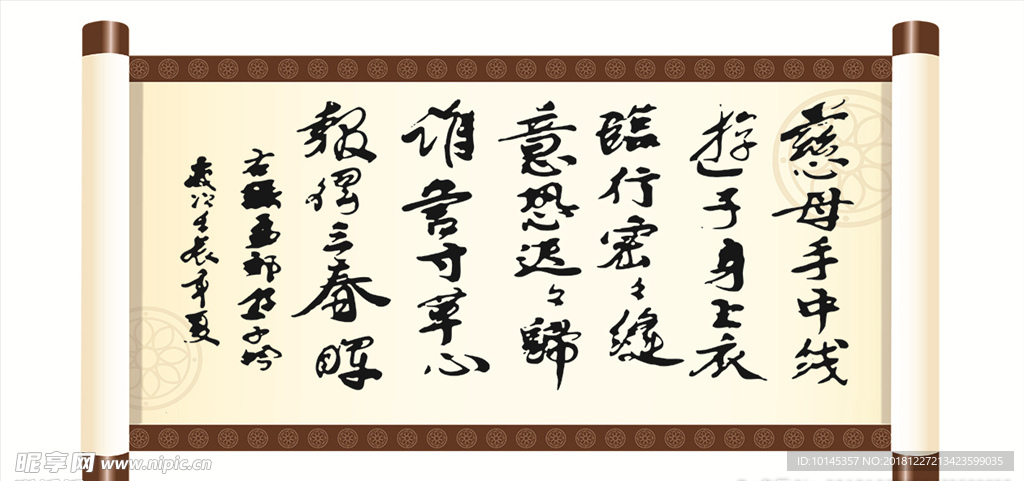 慈母手中线
遊子身上衣
臨行密々缝
意恐迟々歸
谁言寸草心
報得三春晖
右孟郊游子吟
歲次壬辰年夏
昵享网 www.nipic.cn
ID:10145357 NO:20181227213423599035